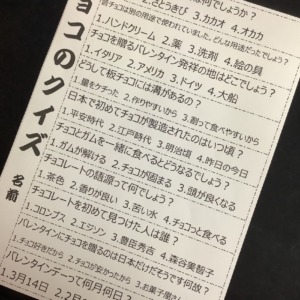 は何でしょうか？
2.さとうきび 3.カカオ 4.オカカ
昔チョコは別の用途で使われていました。どんな用途だったでしょう？
1.ハンドクリーム 2.薬 3.洗剤 4.絵の具
チョコを贈るバレンタイン発祥の地はどこでしょう？
1.イタリア 2.アメリカ 3.ドイツ 4.大船
どうして板チョコには溝があるの？
1.量をケチった 2.作りやすいから 3.割って食べやすいから
日本で初めてチョコが製造されたのはいつ頃？
1.平安時代 2.江戸時代 3.明治頃 4.昨日の今日
チョコとガムを一緒に食べるとどうなるでしょう？
1.ガムが解ける 2.チョコが固まる 3.頭が良くなる
チョコレートの語源って何でしょう？
1.茶色 2.香りが良い 3.苦い水 4.チョコっと食べる
チョコレートを初めて見つけた人は誰？
1.コロンブス 2.エジソン 3.豊臣秀吉 4.森谷美智子
バレンタインにチョコを贈るのは日本だけだそうです何故？
1.チョコ好きだから 2.チョコが安かったから 3.お菓子屋さん
バレンタインデーって何月何日？
1.3月14日 2.2月
ョコのクイズ
名前